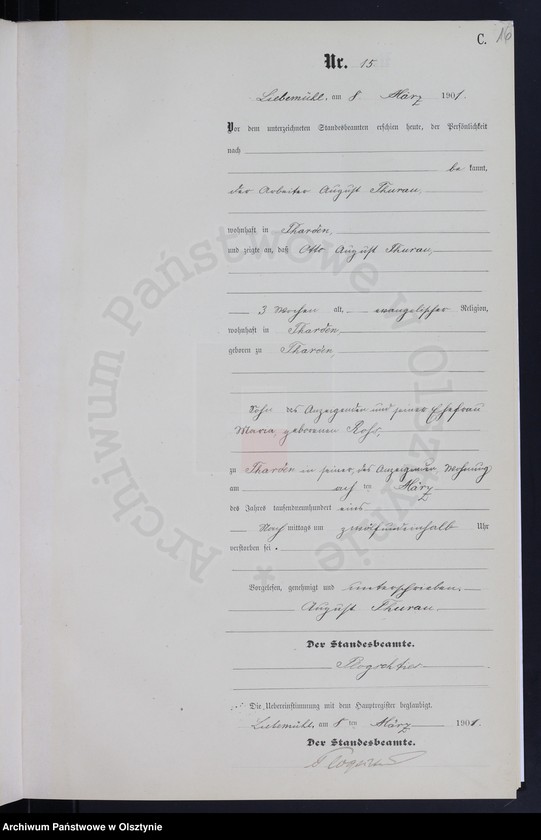 C. 16
Nr. 15
Liebemühl, am 8 März 1901.
Vor dem unterzeichneten Standesbeamten erschien heute, der Persönlichkeit
nach
be kannt,
der Arbeiter August Thurau,
wohnhaft in Tharden,
und zeigte an, daß Otto August Thurau,
3 Wochen alt, evangelischer Religion,
wohnhaft in Tharden,
geboren zu Tharden,
Sohn des Anzeigenden und seiner Ehefrau
Maria, geborenen
zu Tharden in seiner, des Anzeigenden, Wohnung
am ten März
des Jahres tausendneunhundert eins
Nach mittags um zwölf und einhalb Uhr
verstorben sei.
Vorgelesen, genehmigt und unterschrieben.
August Thurau
Der Standesbeamte.
Die Uebereinstimmung mit dem Hauptregister beglaubigt.
Liebemühl, am 8 ten März 1901.
Der Standesbeamte.
Archiwum Państwowe w Olsztynie *
Archiwum Państwowe w Olsztynie